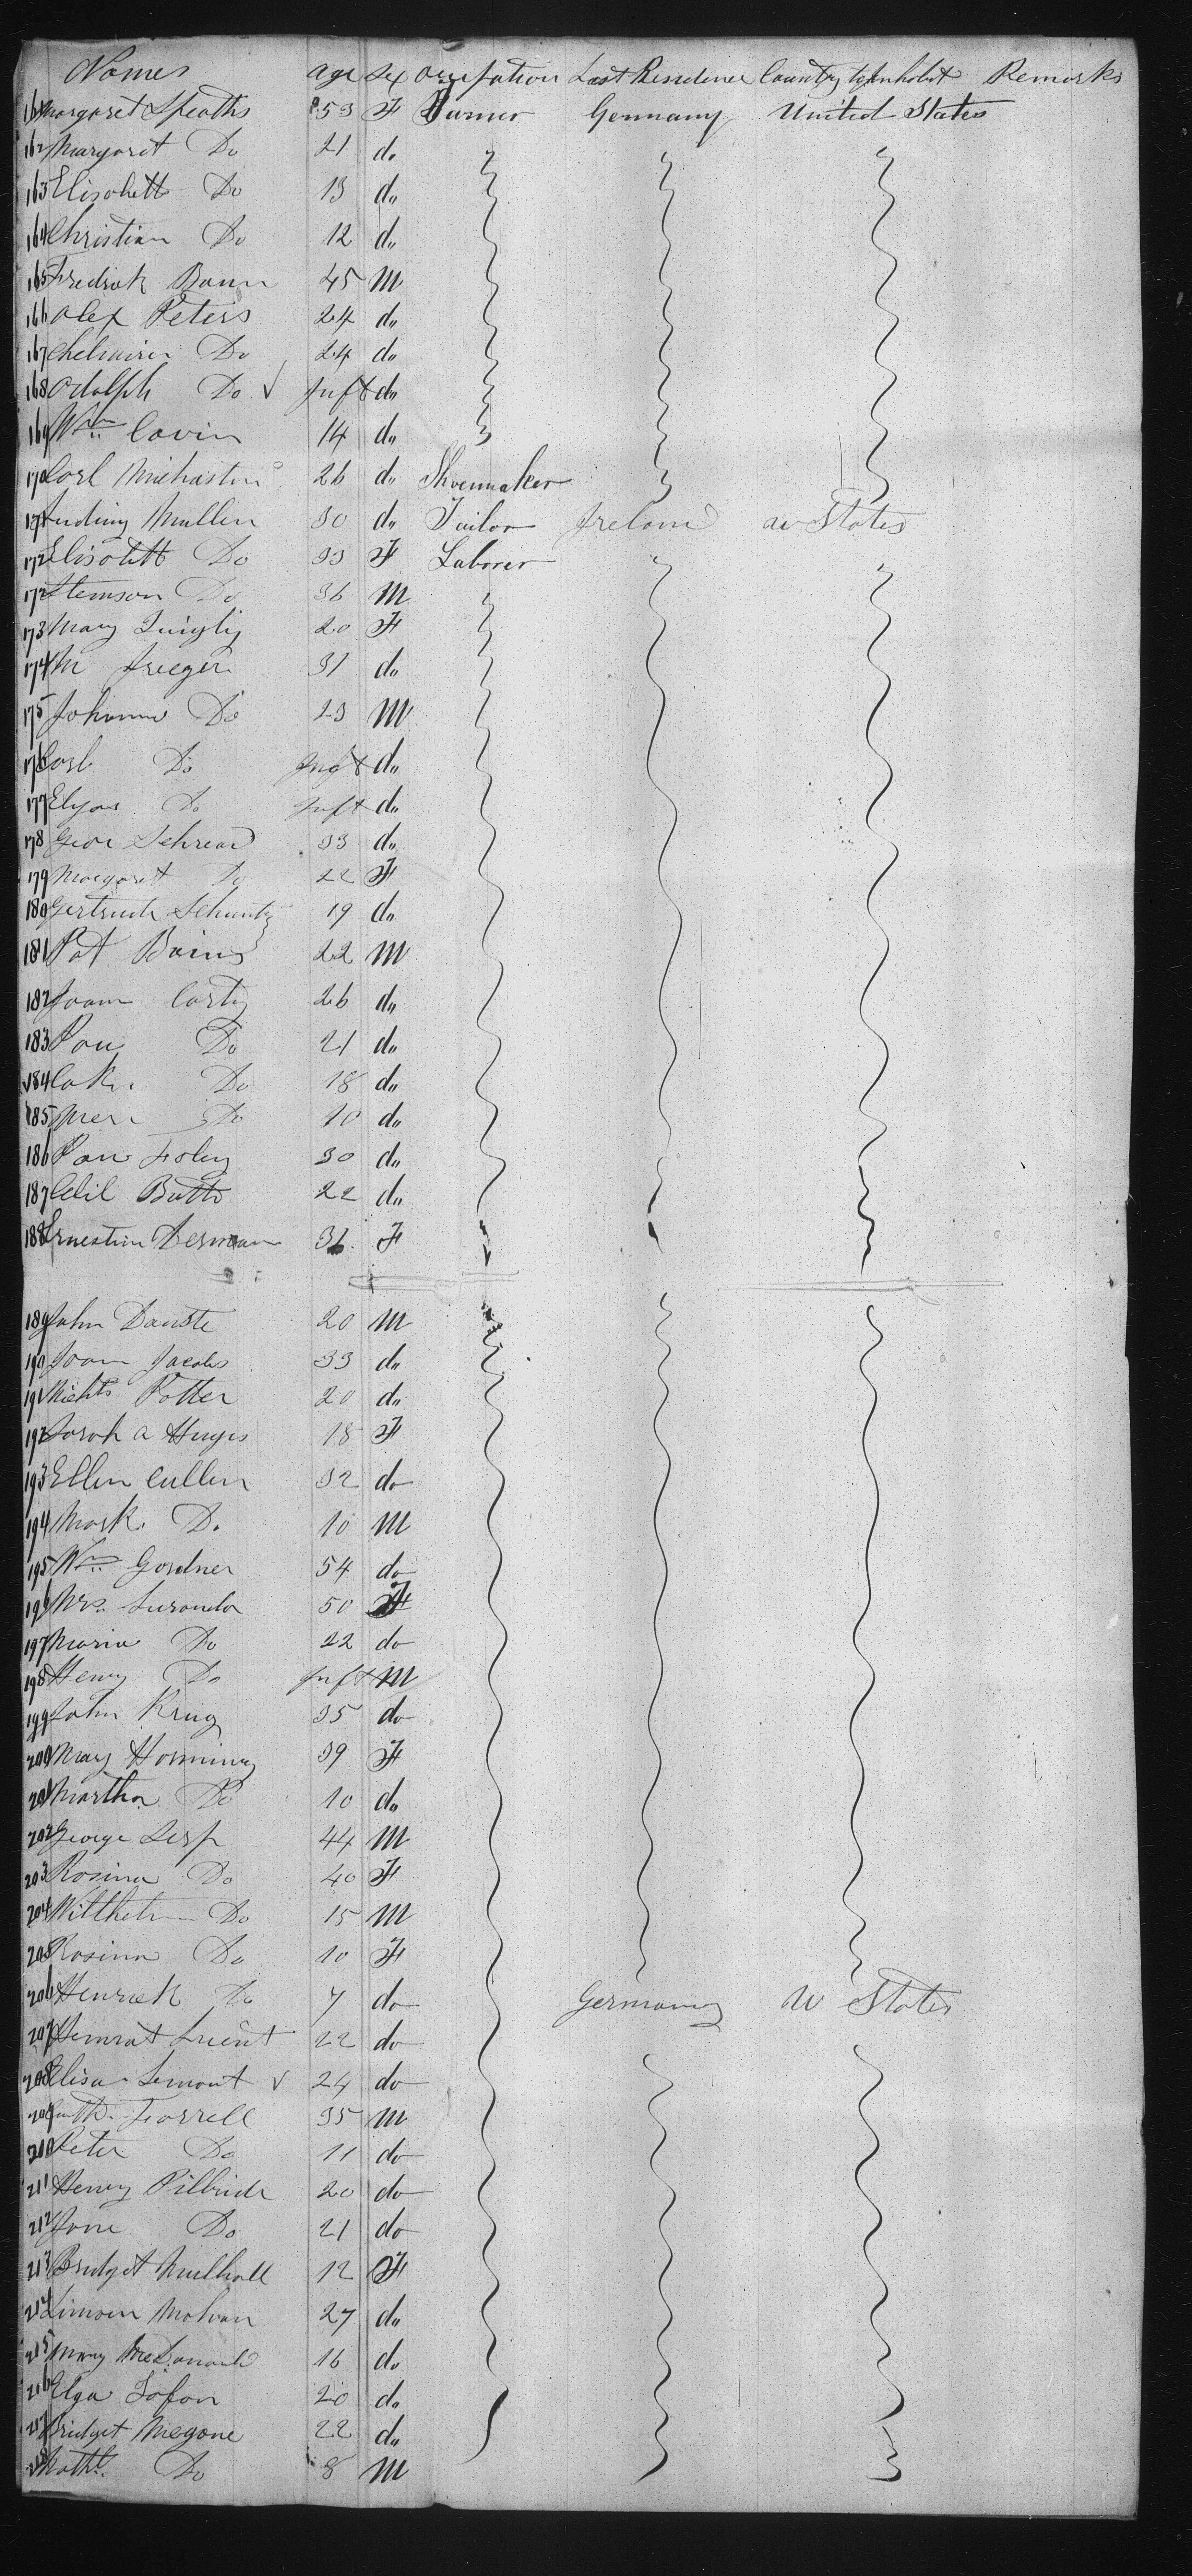 Names age sex occupation Last Residence Country to inhabit Remarks
161 Margaret Speaths 53 F Farmer Germany United States
162 Margaret Do 21 do
163 Elisabett Do 13 do
164 Christian Do 12 do
165 Fredrick Baun 45 M
166 Alex Peters 24 do
167 Do 24 do
168 Adolph Do Inft do
169 Wm Cavin 14 do
170 Carl 26 do Shoemaker
171 Mullen 30 do Tailor Ireland U States
172 Elisabett Do 33 F Laborer
172 Stemson Do 36 M
173 Mary Quigly 20 F
174 M Jreeger 31 do
175 Johanna Do 23 M
176 Carl Do Inft do
177 Elyas Do Inft do
178 Geor Schread 33 do
179 Margaret Do 22 F
180 Gertrude Schuntz 19 do
181 Pat Bains 22 M
182 Joam Carty 26 do
183 Pau Do 21 do
184 Do 18 do
185 Do 10 do
186 Pau Foley 30 do
187 Butts 22 do
188 Ernestin Derman 36 F
189 John Danste 20 M
190 Joam Jacobs 33 do
191 Potter 20 do
192 Sarah a Huges 18 F
193 Ellen Cullen 32 do
194 Mark Do 10 M
195 Wm Gardner 54 do
196 Mrs. 50 F
197 Maria Do 22 do
198 Henry Do Inft M
199 John Krug 35 do
200 Mary Horning 39 F
201 Martha Do 10 do
202 George Lesp 44 M
203 Rosina Do 40 F
204 Willhelm Do 15 M
205 Rosina Do 10 F
206 Henriek Do 7 do Germany U States
207 22 do
208 Elisa Lemont 24 do
209 Farrell 35 M
210 Peter Do 11 do
211 Henry Pilbride 20 do
212 Jane Do 21 do
213 Bridget Mulhall 12 F
214 27 do
215 Mary 16 do
216 Elga Tofon 20 do
217 Bridget Megone 22 do
218 Do 8 M